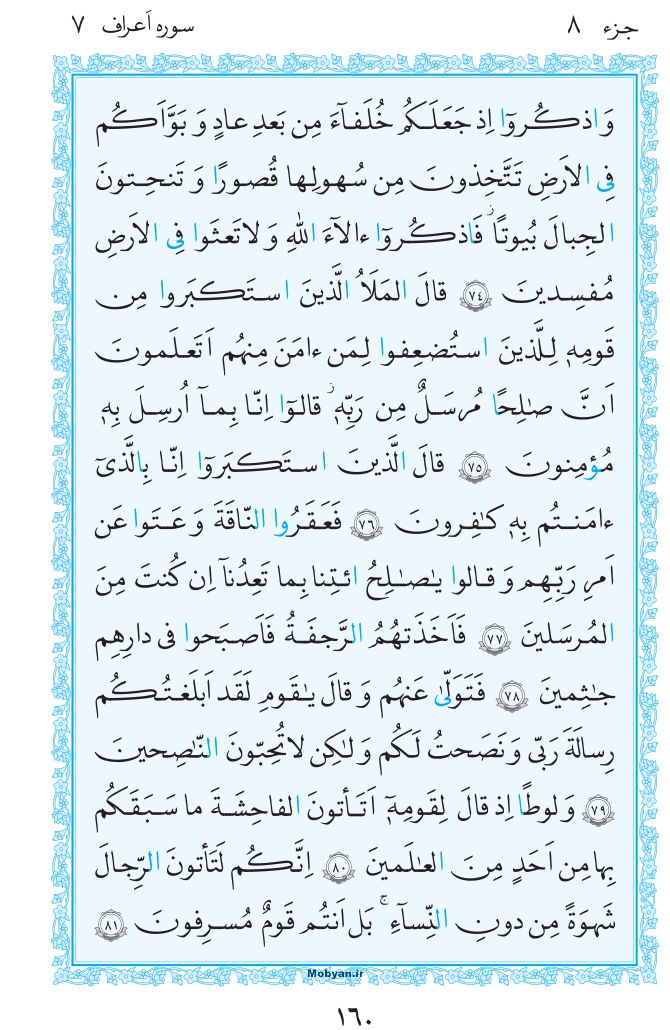 جزء ۸
سوره اَعراف ۷
وَ اذكُروٓا اِذ جَعَلَكُم خُلَفآءَ مِن بَعدِ عادٍ وَ بَوَّاَكُم
فِی الاَرضِ تَتَّخِذونَ مِن سُهولِها قُصورًا وَ تَنحِتونَ
الجِبالَ بُيوتًا ۖ فَاذكُروٓا ءالآءَ اللهِ وَ لا تَعثَوا فِی الاَرضِ
مُفسِدينَ ﴿٧٤﴾ قالَ المَلَاُ الَّذينَ استَكبَروا مِن
قَومِهٖ لِلَّذينَ استُضعِفوا لِمَن ءامَنَ مِنهُم اَتَعلَمونَ
اَنَّ صٰلِحًا مُرسَلٌ مِن رَبِّهٖ ۚ قالوٓا اِنّا بِمآ اُرسِلَ بِهٖ
مُؤمِنونَ ﴿٧٥﴾ قالَ الَّذينَ استَكبَروٓا اِنّا بِالَّذیٓ
ءامَنتُم بِهٖ كٰفِرونَ ﴿٧٦﴾ فَعَقَرُوا النّاقَةَ وَ عَتَوا عَن
اَمرِ رَبِّهِم وَ قالوا يٰصٰلِحُ ائتِنا بِما تَعِدُنآ اِن كُنتَ مِنَ
المُرسَلينَ ﴿٧٧﴾ فَاَخَذَتهُمُ الرَّجفَةُ فَاَصبَحوا فی دارِهِم
جٰثِمينَ ﴿٧٨﴾ فَتَوَلّیٰ عَنهُم وَ قالَ يٰقَومِ لَقَد اَبلَغتُكُم
رِسالَةَ رَبّی وَ نَصَحتُ لَكُم وَ لٰكِن لا تُحِبّونَ النّٰصِحينَ
﴿٧٩﴾ وَ لوطًا اِذ قالَ لِقَومِهٖٓ اَتَأتونَ الفاحِشَةَ ما سَبَقَكُم
بِها مِن اَحَدٍ مِنَ العٰلَمينَ ﴿٨٠﴾ اِنَّكُم لَتَأتونَ الرِّجالَ
شَهوَةً مِن دونِ النِّسآءِ ۚ بَل اَنتُم قَومٌ مُسرِفونَ ﴿٨١﴾
Mobyan.ir
١٦٠